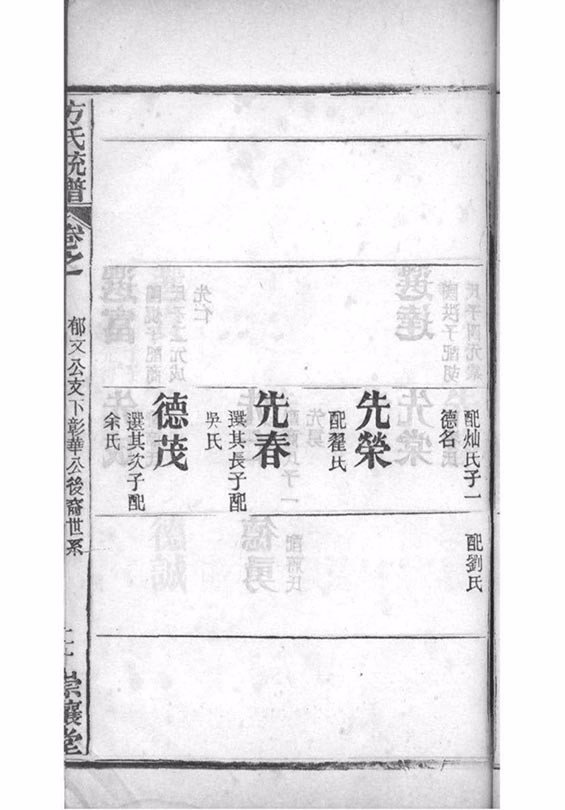 配灿氏子一
德名
先榮
配翟氏
先春
選其長子配
吳氏
德茂
選其次子配
余氏
配劉氏
方氏統譜
卷之一
郁文公支下彰華公後裔世系
崇讓堂